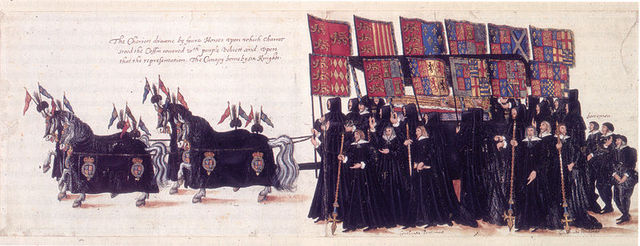 The Chariott drawne by foure Horses upon which Charret
stood the Coffin covered wth purple Velvett and upon
that the representation. The Canapy borne by six Knights.
footemen